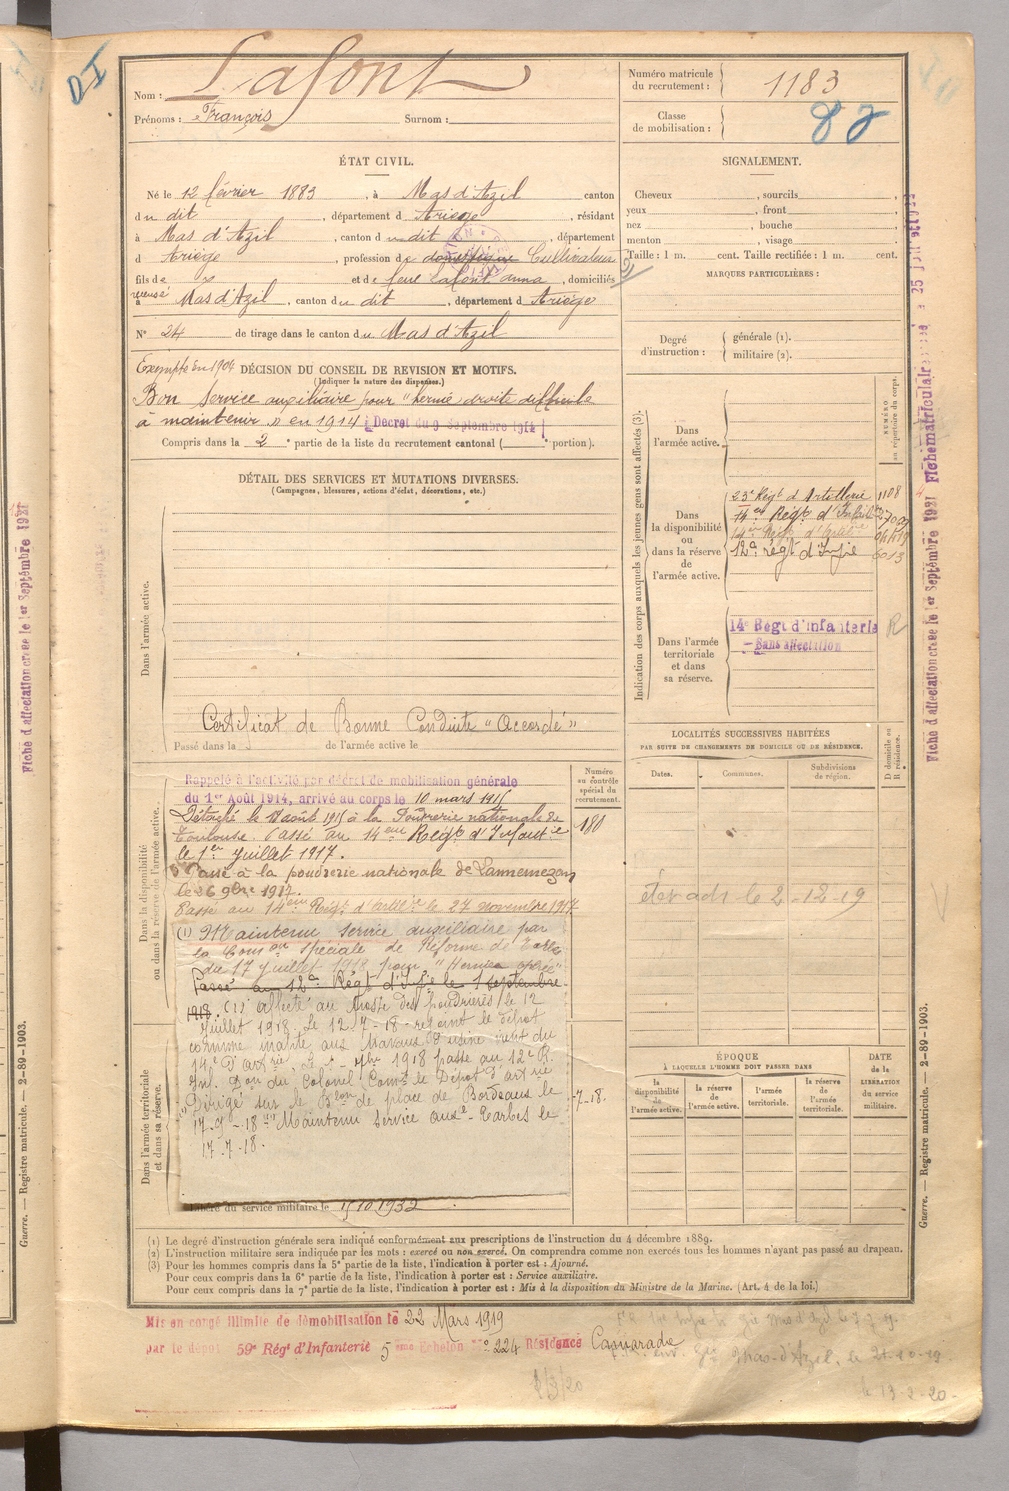 DI
Nom : Lafont
Prénoms : François Surnom :
Numéro matricule du recrutement : 1183
Classe de mobilisation :
ÉTAT CIVIL.
Né le 12 février 1883, à Mas d'Azil canton
du dit, département d Ariège, résidant
à Mas d'Azil, canton du dit, département
d Ariège, profession de domestique Cultivateur
fils de et de feue Lafont anna, domiciliés
à Mas d'Azil, canton du dit, département d Ariège
N° 24 de tirage dans le canton du Mas d'Azil
Exempté en 1904 DÉCISION DU CONSEIL DE REVISION ET MOTIFS.
(Indiquer la nature des dispenses.)
Bon Service auxiliaire pour "hernie droite difficile
à maintenir" en 1914 Décret du 9 Septembre 1914
Compris dans la 2e partie de la liste du recrutement cantonal ( portion).
SIGNALEMENT.
Cheveux , sourcils ,
yeux , front ,
nez , bouche ,
menton , visage
Taille : 1 m. cent. Taille rectifiée : 1 m. cent.
MARQUES PARTICULIÈRES :
Degré d'instruction : générale (1).
militaire (2).
DÉTAIL DES SERVICES ET MUTATIONS DIVERSES.
(Campagnes, blessures, actions d'éclat, décorations, etc.)
Dans l'armée active.
Certificat de Bonne Conduite "Accordé"
Passé dans la de l'armée active le
Indication des corps auxquels les jeunes gens sont affectés (3).
NUMÉRO au répertoire du corps.
Dans l'armée active.
Dans la disponibilité ou dans la réserve de l'armée active.
23e Régt d'Artillerie 1108
14e Régt d'Infanterie
14ème Régt d'Artrie
12e régt d'Infie 6013
Dans l'armée territoriale et dans sa réserve.
14e Régt d'Infanterie R
Sans affectation
LOCALITÉS SUCCESSIVES HABITÉES
PAR SUITE DE CHANGEMENTS DE DOMICILE OU DE RÉSIDENCE.
Dates. Communes. Subdivisions de région. D domicile ou R résidence.
2-12-19
Dans la disponibilité ou dans la réserve de l'armée active.
Numéro au contrôle spécial du recrutement.
180
Rappelé à l'activité par décret de mobilisation générale
du 1er Août 1914, arrivé au corps le 10 mars 1915
Détaché le août 1915 à la Poudrerie nationale de
Toulouse. Passé au 14eme Régt d'Infantie
le 1er Juillet 1917.
Passé à la poudrerie nationale de Lannemezan
le 26 9bre 1917.
Passé au 14eme Régt d'artie le 27 novembre 1917
(1) Maintenu Service auxiliaire par
la Comon spéciale de Réforme de Tarbes
du 17 Juillet 1918 pour "Hernie opérée"
Passé au 12e Régt d'Infie le 1 Septembre
1918. (1) affecté au Poste des poudreries le 12
Juillet 1918. Le 12-7-18 rejoint le dépôt
comme inapte aux travaux d'usine vient du
14e d'artrie 1918 passe au 12e R.
Inf. Don du Colonel Comt le Dépôt d'artrie
Dirigé sur le de place de Bordeaux le
17-9-18 "Maintenu Service auxe - Tarbes le
17-7-18.
-7-18.
Dans l'armée territoriale et dans sa réserve.
Libéré du service militaire le 15/10/1932
ÉPOQUE
À LAQUELLE L'HOMME DOIT PASSER DANS
la disponibilité de l'armée active. la réserve de l'armée active. l'armée territoriale. la réserve de l'armée territoriale.
DATE de la LIBÉRATION du service militaire.
(1) Le degré d'instruction générale sera indiqué conformément aux prescriptions de l'instruction du 4 décembre 1889.
(2) L'instruction militaire sera indiquée par les mots : exercé ou non exercé. On comprendra comme non exercés tous les hommes n'ayant pas passé au drapeau.
(3) Pour les hommes compris dans la 5e partie de la liste, l'indication à porter est : Ajourné.
Pour ceux compris dans la 6e partie de la liste, l'indication à porter est : Service auxiliaire.
Pour ceux compris dans la 7e partie de la liste, l'indication à porter est : Mis à la disposition du Ministre de la Marine. (Art. 4 de la loi.)
Mis en congé illimité de démobilisation le 22 Mars 1919
par le dépôt 59e Régt d'Infanterie 5ème Echelon N° 224 Résidence Camarade
Mas-d'Azil, le 21-10-19
le 13-2-20-
Guerre. — Registre matricule. — 2-89-1903.
Guerre. — Registre matricule. — 2-89-1903.
Fiche d'affectation créée le 1er Septembre 1921
Fiche d'affectation créée le 1er Septembre 1921 Fiche matriculaire